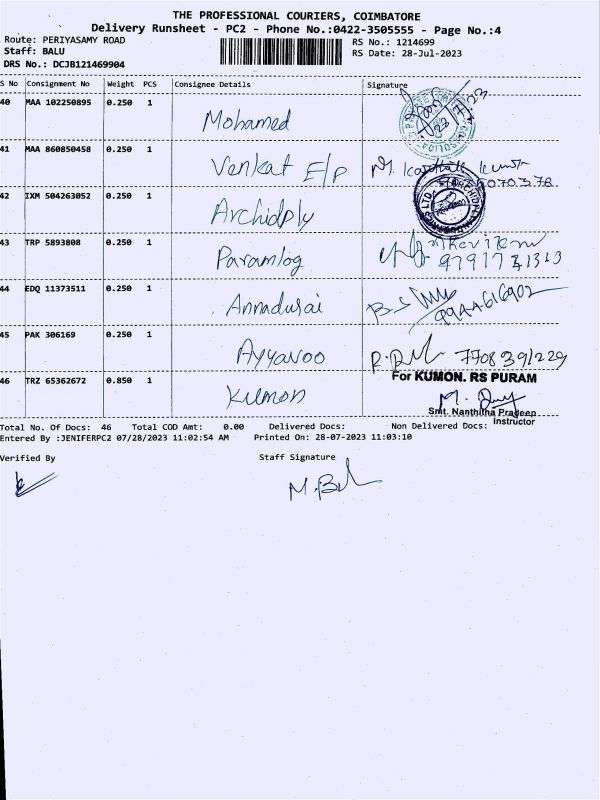 THE PROFESSIONAL COURIERS, COIMBATORE
Delivery Runsheet - PC2 - Phone No.:0422-3505555 - Page No.:4
Route: PERIYASAMY ROAD
RS No.: 1214699
Staff: BALU
RS Date: 28-Jul-2023
DRS No.: DCJB121469904
S No Consignment No Weight PCS Consignee Details Signature
40 MAA 102250895 0.250 1 Mohamed
41 MAA 860850458 0.250 1 Venkat E/P
42 IXM 504263052 0.250 1 Archidply
43 TRP 5893808 0.250 1 Paramlog
44 EDQ 11373511 0.250 1 Annadurai
45 PAK 306169 0.250 1 Ayyavoo 7708391229
46 TRZ 65362672 0.850 1 Kumon
For KUMON. RS PURAM
Smt. Nanthitha Pradeep
Instructor
Total No. Of Docs: 46 Total COD Amt: 0.00 Delivered Docs: Non Delivered Docs:
Entered By :JENIFERPC2 07/28/2023 11:02:54 AM Printed On: 28-07-2023 11:03:10
Verified By Staff Signature